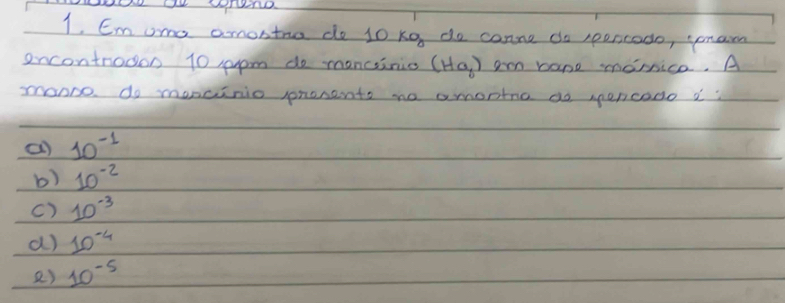 1. Em uma amostra de 10 Kg de carne de pescado, foram
encontrados 10 ppm de mercúrio (Hg) em base mássica. A
massa de mercúrio presente na amostra de pescado é:
a) 10⁻¹
b) 10⁻²
c) 10⁻³
d) 10⁻⁴
e) 10⁻⁵